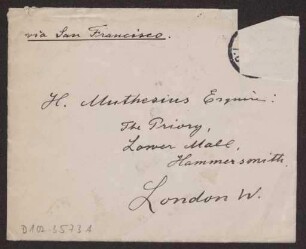 via San Francisco.
H. Muthesius Esquire:
The Priory,
Lower Mall,
Hammersmith.
London W.
D 102-3573 A